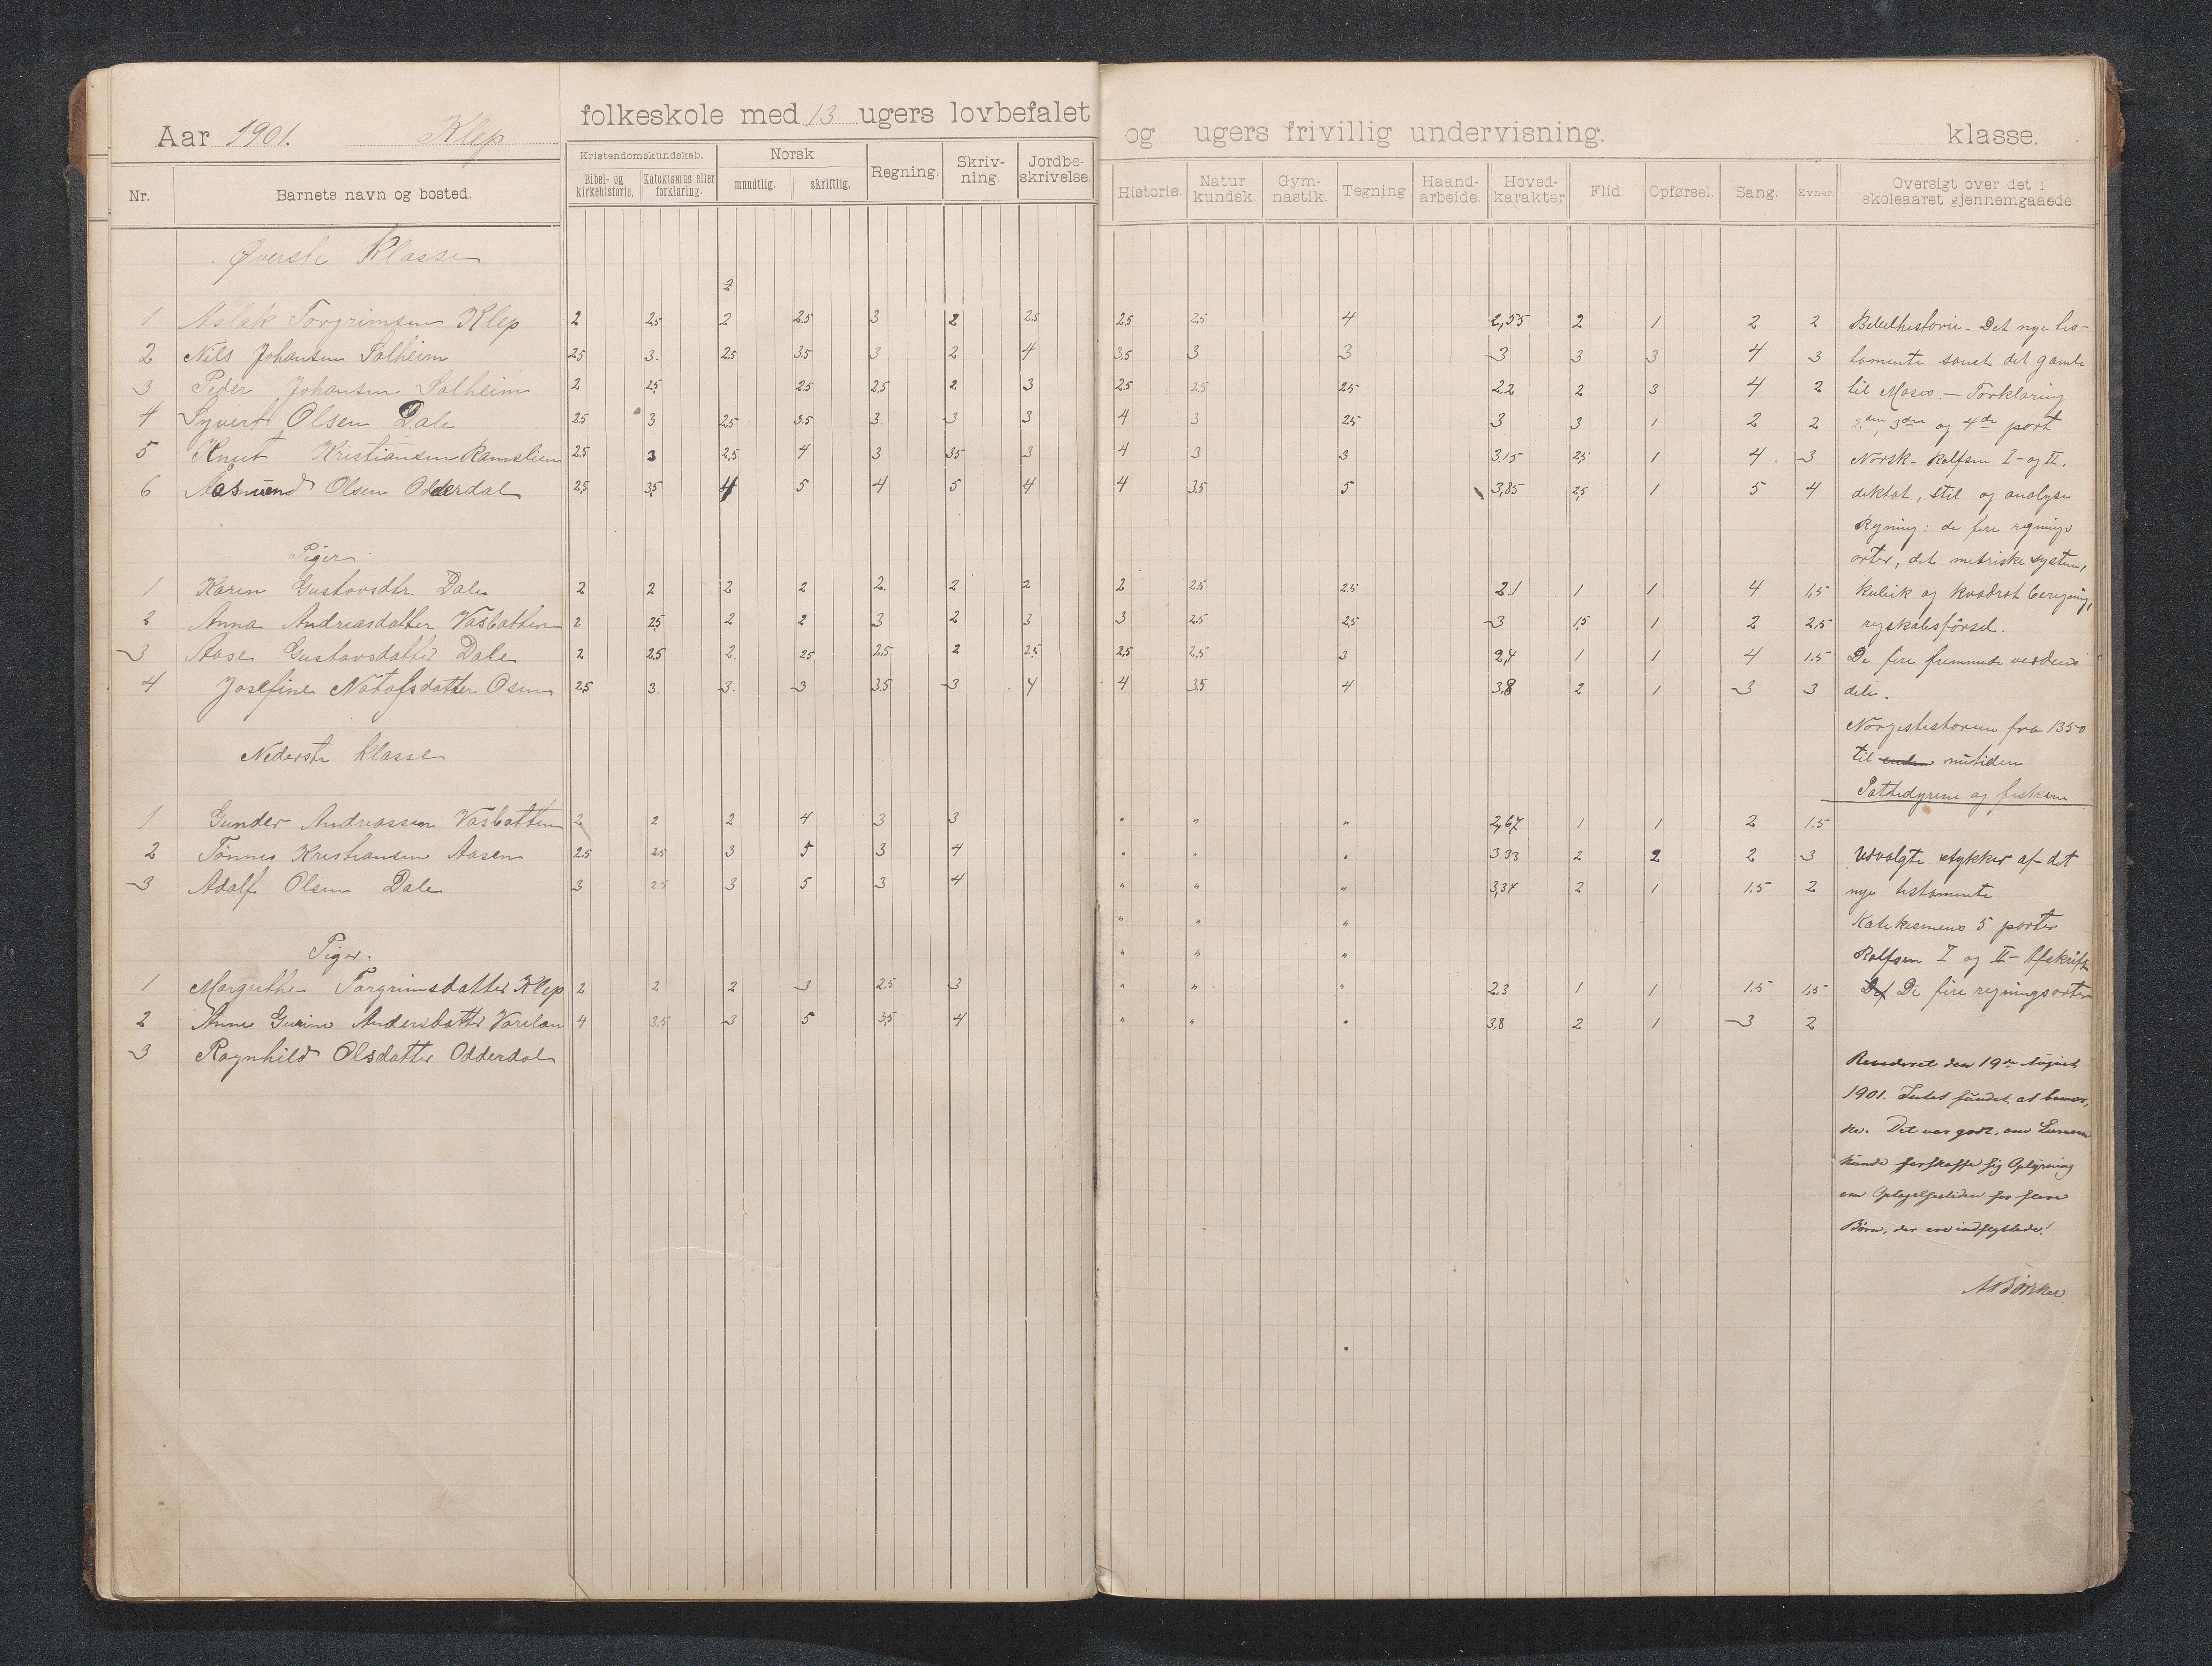 Aar 1901. Klep folkeskole med 13 ugers lovbefalet og ugers frivillig undervisning. klasse.
Nr. Barnets navn og bosted. Kristendomskundskab. Bibel- og kirkehistorie. Katekismus eller forklaring. Norsk mundtlig. skriftlig. Regning. Skriv-ning. Jordbe-skrivelse. Historie. Natur kundsk. Gym-nastik. Tegning Haand-arbeide. Hoved-karakter Flid. Opførsel. Sang. Evner Oversigt over det i skoleaaret gjennemgaaede.
Øverste Klasse
2
1 Aslak Torgrimsen Klep 2 2.5 2 2.5 3 2 2.5 2.5 2.5 4 2,55 2 1 2 2 Bibelhistorie - Det nye tes-
2 Nils Johansen Solheim 2.5 3. 2.5 3.5 3 2 4 3,5 3 3 3 3 3 4 3 tamente samt det gamle
3 Peder Johansen Solheim 2 2.5 2.5 2.5 2 3 2.5 2.5 2.5 2.2 2 3 4 2 til Moses. - Forklaring
4 Syvert Olsen Dale 2.5 3 2,5 3.5 3. 3 3 4 3 2.5 3 3 1 2 2 2den, 3die og 4de part
5 Knut Kristiansen Ramslien 2.5 3 2,5 4 3 3.5 3 4 3 3 3.15 2,5 1 4. 3 Norsk - Rolfsen I - og II.
6 Aasmund Olsen Odderdal 2,5 3,5 4 5 4 5 4 4 3.5 5 3,85 2,5 1 5 4 diktat, stil og analyse
Regning: de fire regnings
Piger. arter, det metriske system,
1 Karen Gustavsdtr. Dale 2 2 2 2 2. 2 2 2 2.5 2.5 2.1 1 1 4 1,5 kubik og kvadrat beregning,
2 Anna Andreasdatter Vasbotten 2 2.5 2 2 3 2 3 3 2.5 2,5 3 1,5 1 2 2,5 regskabsførsel.
3 Aase Gustavsdatter Dale 2 2.5 2. 2.5 2.5 2 2.5 2.5 2,5 3 2,4 1 1 4 1.5 De fire fremmede verdens
4 Josefine Notofsdatter Osen 2.5 3. 3. 3 3.5 3 4 4 3.5 4 3,8 2 1 3 3 dele.
Norgeshistorien fra 1350
Nederste klasse til nutiden
Pattedyrene og fiskene
1 Gunder Andreassen Vasbotten 2 2 2 4 3 3 " " " 2,67 1 1 2 1.5
2 Tønnes Kristiansen Aasen 2.5 2.5 3 5 3 4 " " " 3.33 2 2 2 3 Udvalgte stykker af det
3 Adolf Olsen Dale 3 2.5 3 5 3 4 " " " 3,34 2 1 1.5 2 nye testamente
" " " Katekismens 5 parter
Piger. " " " Rolfsen I og II - Afskrift
1 Margrethe Torgrimsdatter Klep 2 2 2 3 2.5 3 " " " 2.3 1 1 1.5 1,5 De fire regningsarter
2 Anne Gurine Andersdatter 4 3.5 3 5 3,5 4 " " " 3,8 2 1 3 2
3 Ragnhild Olsdatter Odderdal
Revideret den 19de August
1901. Intet fundet at bemær-
ke. Det var godt, om Læreren
kunde forskaffe sig Oplysning
om Optagelsestiden for flere
Børn, der ere indflyttede!